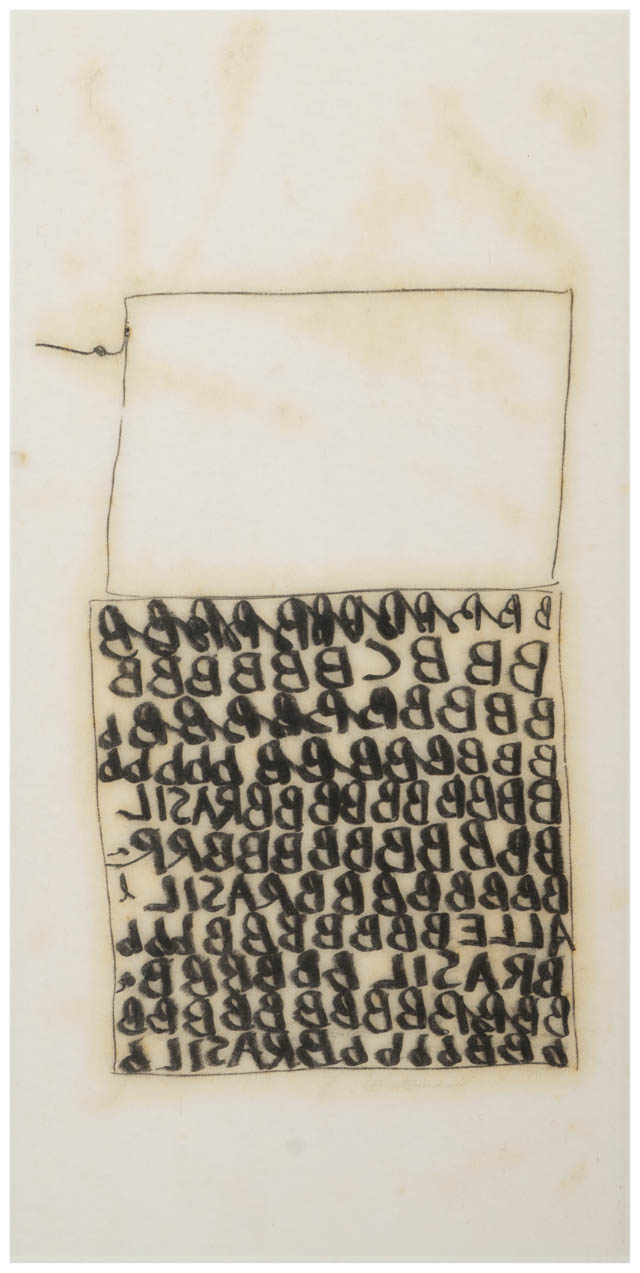 B B B B B B B B B B B B
B B B C B B B B B B
B B B B B B B B B B B b
B B B B B B B B B b b b b b b
B B B B B B B B B BRASIL
B B B B B B B B B B R R
B B B B B B B B BRASIL l
ALLE B B B B B B B B b b b
BRASIL B B B B B B B B
B B B B B B B B B B B B B
b B B b b b b BRASIL b